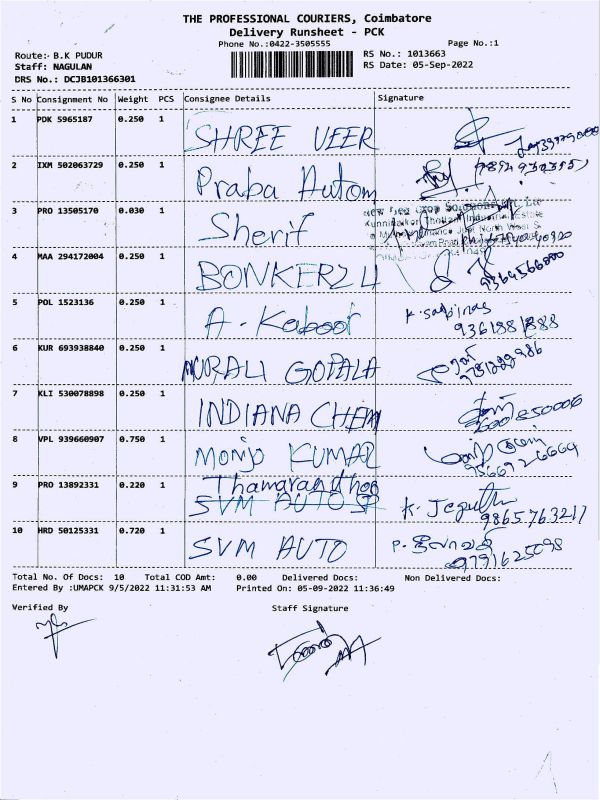 THE PROFESSIONAL COURIERS, Coimbatore
Delivery Runsheet - PCK
Phone No.:0422-3505555
Page No.:1
Route:- B.K PUDUR
Staff: NAGULAN
DRS No.: DCJB101366301
RS No.: 1013663
RS Date: 05-Sep-2022
S No Consignment No Weight PCS Consignee Details Signature
1 PDK 5965187 0.250 1 SHREE VEER
2 IXM 502063729 0.250 1 Praba Autom
3 PRO 13505170 0.030 1 Sherif
4 MAA 294172004 0.250 1 BONKERZ 4 9364566000
5 POL 1523136 0.250 1 A. Kaboor 9361881888
6 KUR 693938840 0.250 1 MURALI GOPALA
7 KLI 530078898 0.250 1 INDIANA CHEM
8 VPL 939660907 0.750 1 MONJ KUMAR
9 PRO 13892331 0.220 1 Thamaranthoo
SVM AUTO SP K. Jeguthi 9865763217
10 HRD 50125331 0.720 1 SVM AUTO 9791625098
Total No. Of Docs: 10 Total COD Amt: 0.00 Delivered Docs: Non Delivered Docs:
Entered By :UMAPCK 9/5/2022 11:31:53 AM Printed On: 05-09-2022 11:36:49
Verified By Staff Signature